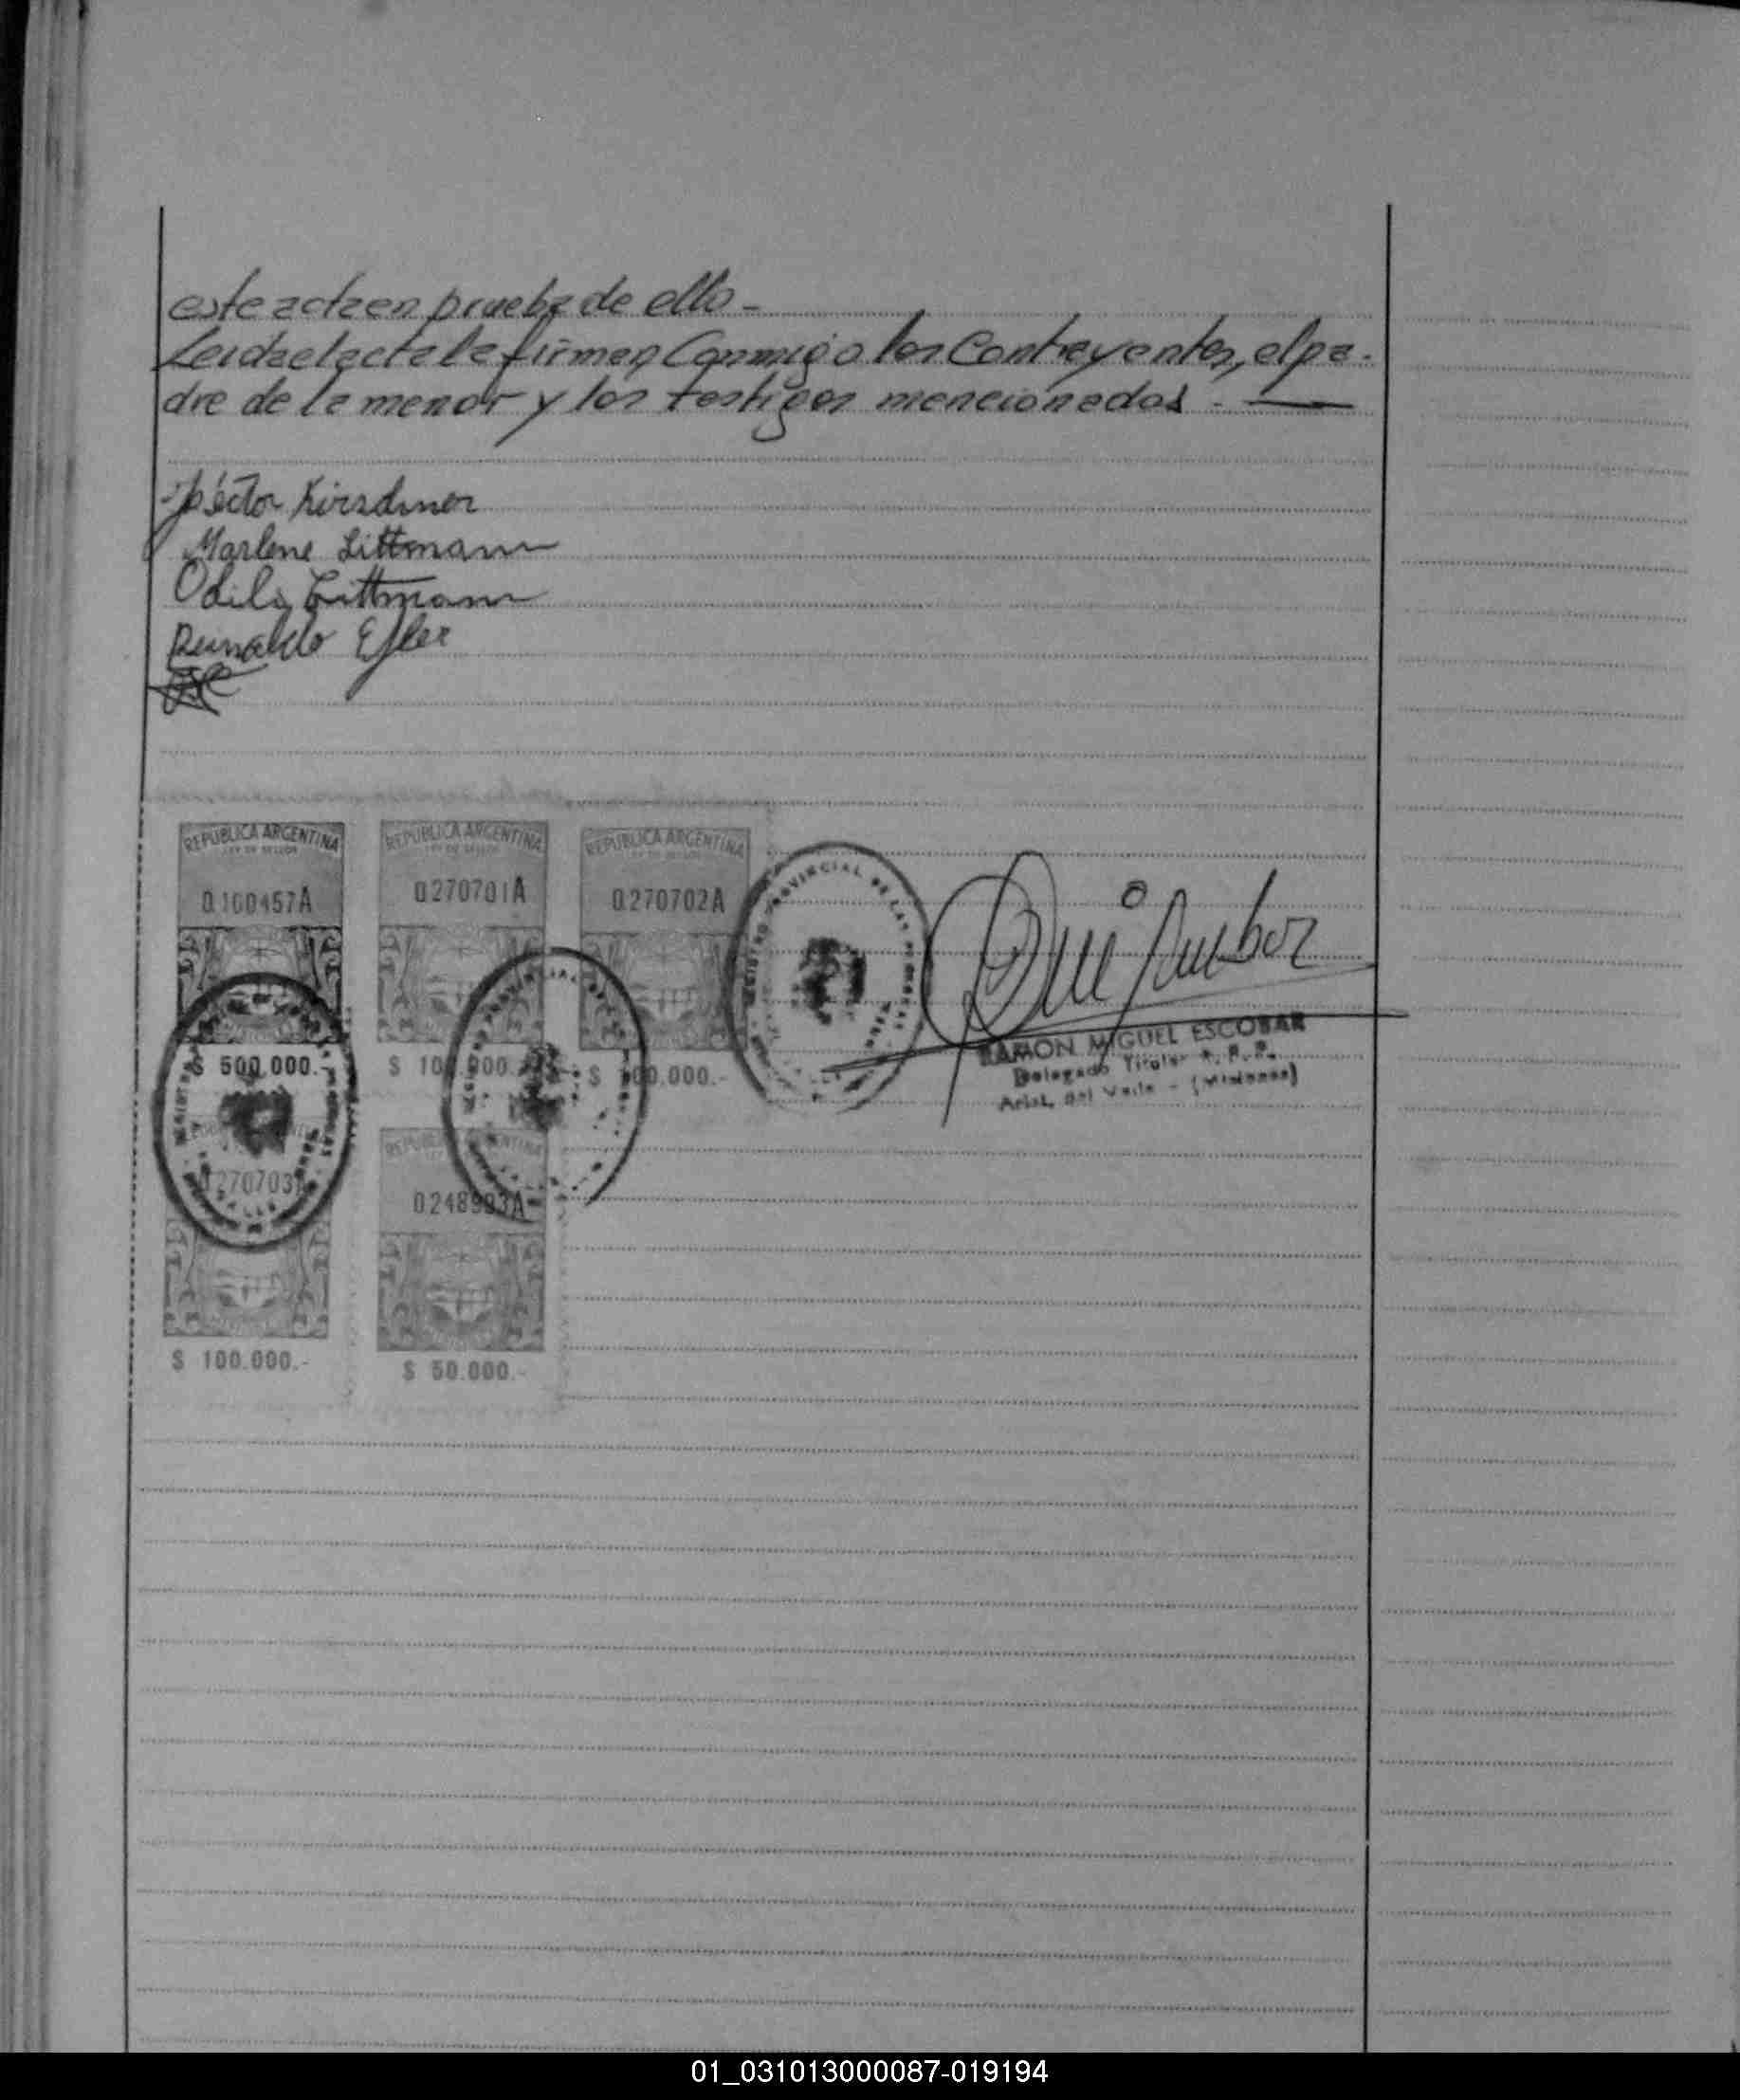 este acta en prueba de ello -
Leida el acta la firman Conmigo los Contrayentes, el pa-
dre de la menor y los testigos mencionados. -
Héctor Kirschner
Marlene Littmann
Odilo Littmann
Reinaldo
REPUBLICA ARGENTINA REPUBLICA ARGENTINA REPUBLICA ARGENTINA
LEY DE SELLOS
0.160457A 0.270701A 0.270702A
$ 500.000.- $ 100.000.- $ 100.000.-
REGISTRO PROVINCIAL DE LAS PERSONAS
RAMON MIGUEL ESCOBAR
Delegado Titular R. P. P.
Arist. del Valle - (Misiones)
REPUBLICA ARGENTINA
270703 0.248993A
$ 100.000.- $ 50.000.-
01_031013000087-019194